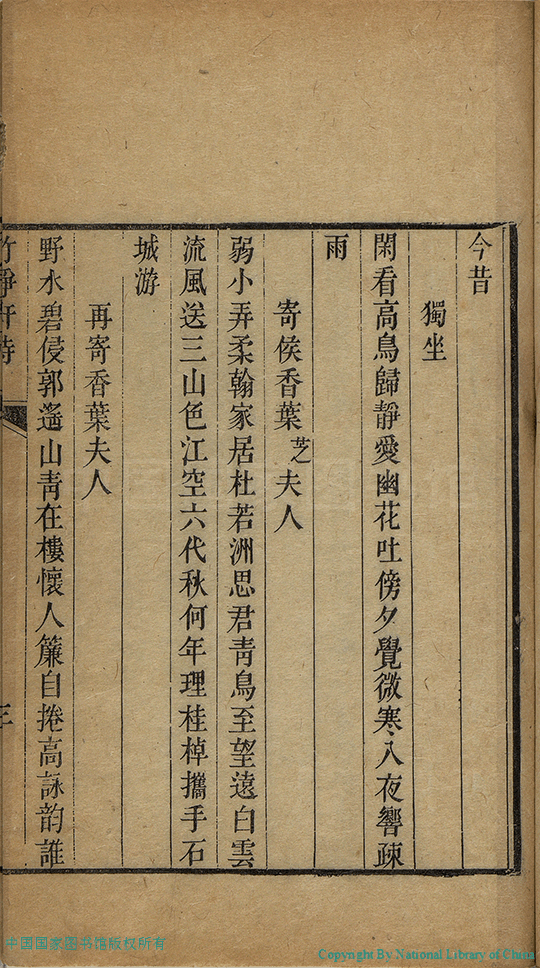 今昔
獨坐
閑看高鳥歸靜愛幽花吐傍夕覺微寒入夜響疎
雨
寄侯香葉芝夫人
弱小弄柔翰家居杜若洲思君青鳥至望遠白雲
流風送三山色江空六代秋何年理桂棹攜手石
城游
再寄香葉夫人
野水碧侵郭遙山青在樓懷人簾自捲高詠韵誰
竹靜軒詩
三
中国国家图书馆版权所有
Copyright By National Library of China